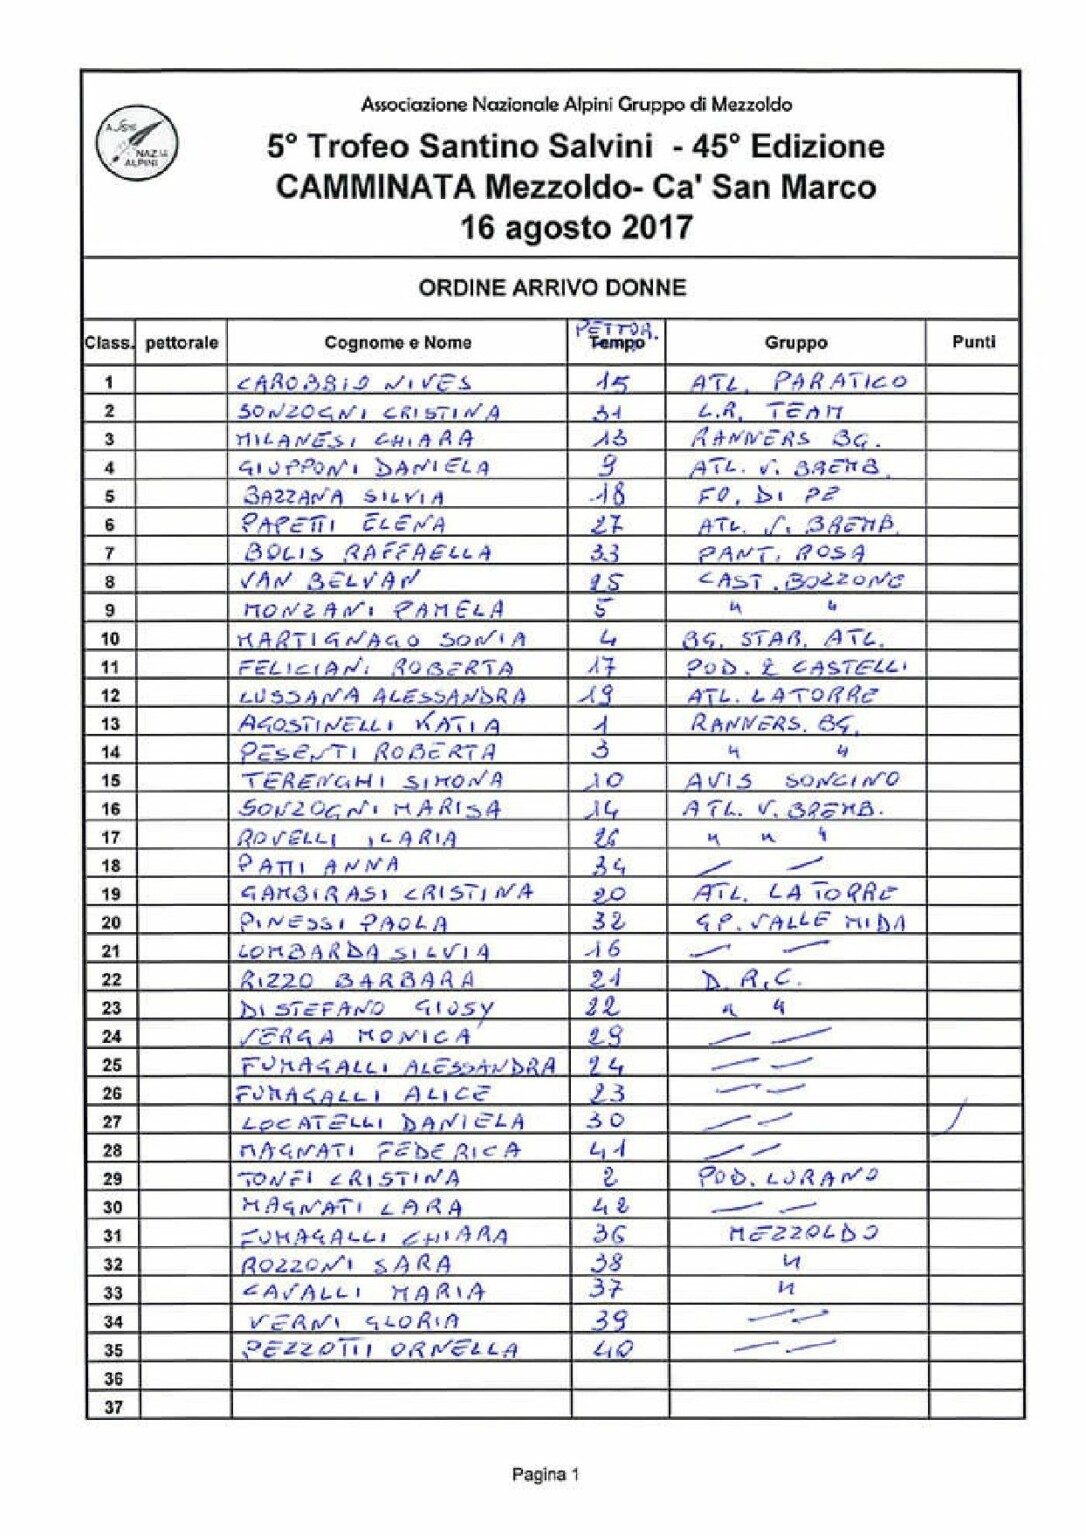 Associazione Nazionale Alpini Gruppo di Mezzoldo
5° Trofeo Santino Salvini - 45° Edizione
CAMMINATA Mezzoldo- Ca' San Marco
16 agosto 2017
NAZ.LE
ALPINI
ORDINE ARRIVO DONNE
PETTOR.
Class. pettorale Cognome e Nome Tempo Gruppo Punti
1 CAROBBIO NIVES 15 ATL. PARATICO
2 SONZOGNI CRISTINA 31 L.R. TEAM
3 MILANESI CHIARA 13 RANNERS BG.
4 GIUPPONI DANIELA 9 ATL. V. BREMB.
5 BAZZANA SILVIA 18 FO. DI PE
6 PAPETTI ELENA 27 ATL. V. BREMB.
7 BOLIS RAFFAELLA 33 PANT. ROSA
8 VAN BELVAN 25 CAST. BOZZONE
9 MONZANI PAMELA 5 " "
10 MARTIGNAGO SONIA 4 BG. STAR. ATL.
11 FELICIANI ROBERTA 17 POD. 2 CASTELLI
12 LUSSANA ALESSANDRA 19 ATL. LA TORRE
13 AGOSTINELLI KATIA 1 RANNERS. BG.
14 PESENTI ROBERTA 3 " "
15 TERENGHI SIMONA 10 AVIS SONCINO
16 SONZOGNI MARISA 14 ATL. V. BREMB.
17 ROVELLI ILARIA 26 " " "
18 PATTI ANNA 34 — —
19 GAMBIRASI CRISTINA 20 ATL. LA TORRE
20 PINESSI PAOLA 32 GP. VALLE MIDA
21 LOMBARDA SILVIA 16 — —
22 RIZZO BARBARA 21 D.R.C.
23 DI STEFANO GIUSY 22 " "
24 VERGA MONICA 29 — —
25 FUMAGALLI ALESSANDRA 24 — —
26 FUMAGALLI ALICE 23 — —
27 LOCATELLI DANIELA 30 — —
28 MAGNATI FEDERICA 41 — —
29 TONFI CRISTINA 2 POD. LURANO
30 MAGNATI LARA 42 — —
31 FUMAGALLI CHIARA 36 MEZZOLDO
32 ROZZONI SARA 38 "
33 CAVALLI MARIA 37 "
34 VERNI GLORIA 39 — —
35 PEZZOTTI ORNELLA 40 — —
36
37
Pagina 1